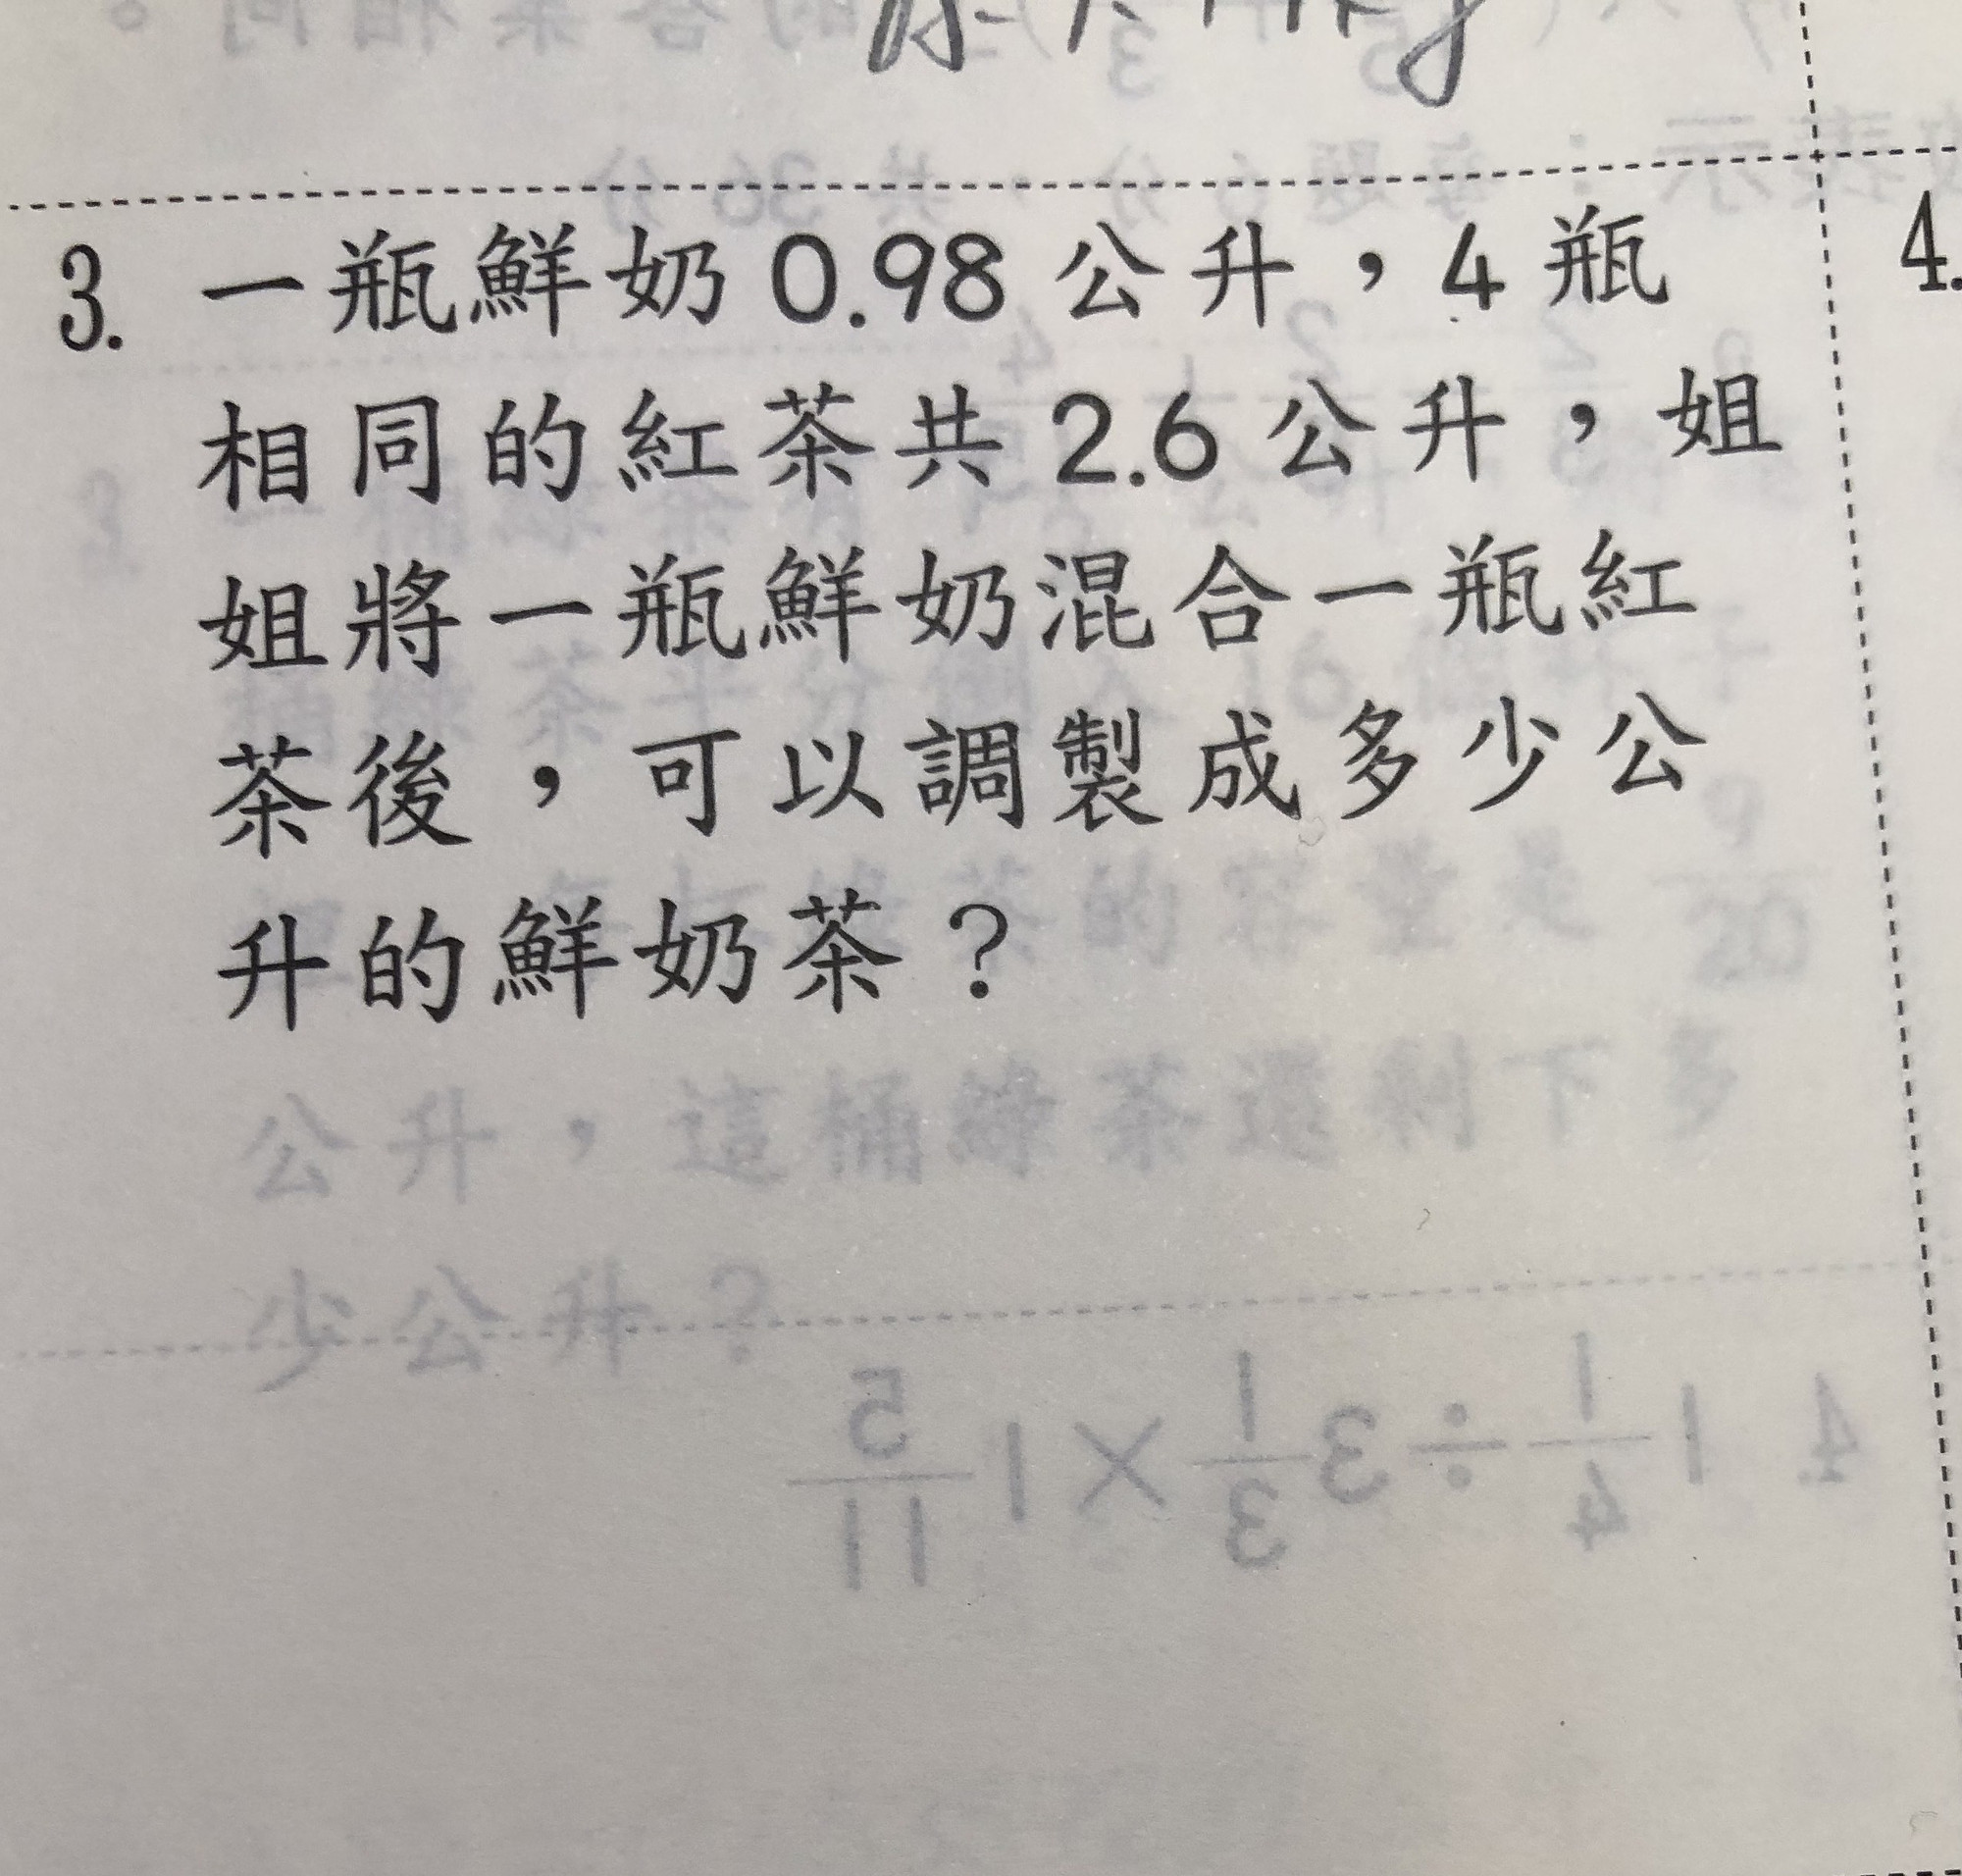 3. 一瓶鮮奶0.98公升，4瓶
相同的紅茶共2.6公升，姐
姐將一瓶鮮奶混合一瓶紅
茶後，可以調製成多少公
升的鮮奶茶？
4.